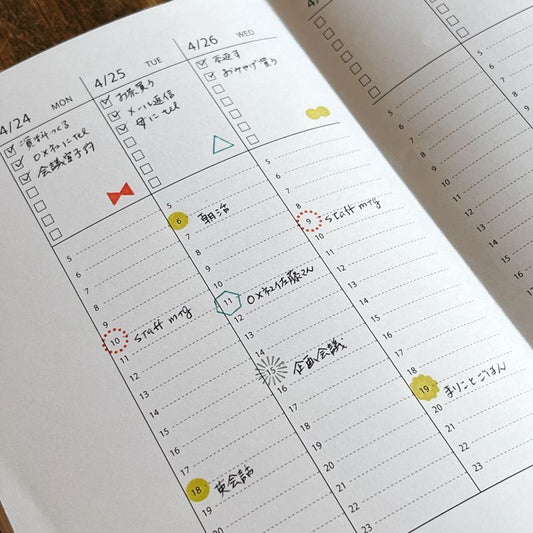 4/24 MON
資料つくる
○×社にtel
会議室予約
5
6
7
8
9
10 staff mtg
11
12
13
14
15
16
17
18 英会話
19
20
4/25 TUE
お茶買う
メール返信
母にtel
5
6 朝活
7
8
9
10
11 ○×社佐藤さん
12
13
14
15 企画会議
16
17
18
19
20
21
22
23
4/26 WED
本返す
おみやげ買う
5
6
7
8
9 staff mtg
10
11
12
13
14
15
16
17
18
19 まりことごはん
20
21
22
23
5
6
7
8
9
10
11
12
13
14
15
16
5
6
7
8